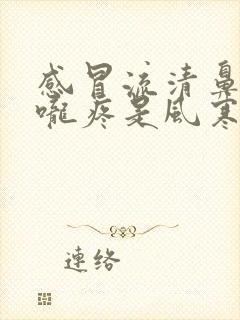 感冒流清鼻
嚨疼是風寒
連絡